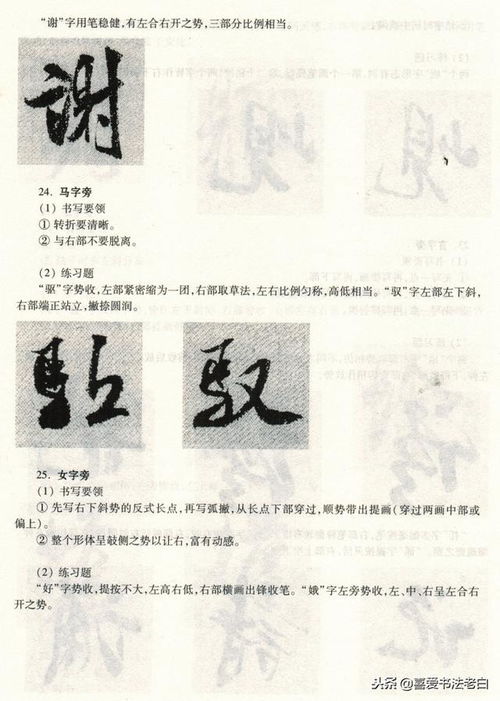 “谢”字用笔稳健，有左合右开之势，三部分比例相当。
謝
24. 马字旁
(1) 书写要领
① 转折要清晰。
② 与右部不要脱离。
(2) 练习题
“驱”字势收，左部紧密缩为一团，右部取草法，左右比例匀称，高低相当。“驭”字左部左下斜，
右部端正站立，撇捺圆润。
馭
25. 女字旁
(1) 书写要领
① 先写右下斜势的反式长点，再写弧撇，从长点下部穿过，顺势带出提画(穿过两画中部或
偏上)。
② 整个形体呈敧侧之势以让右，富有动感。
(2) 练习题
“好”字势收，提按不大，左高右低，右部横画出锋收笔。“娥”字左旁势收，左、中、右呈左合右
开之势。
头条 @喜爱书法老白